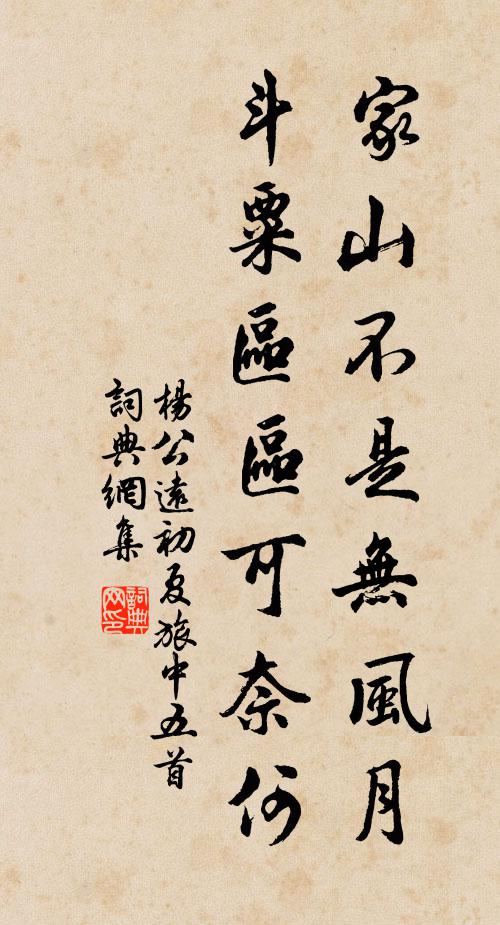 家山不是無風月
斗粟區區可奈何
楊公遠初夏旅中五首
詞典網集
詞典
网印